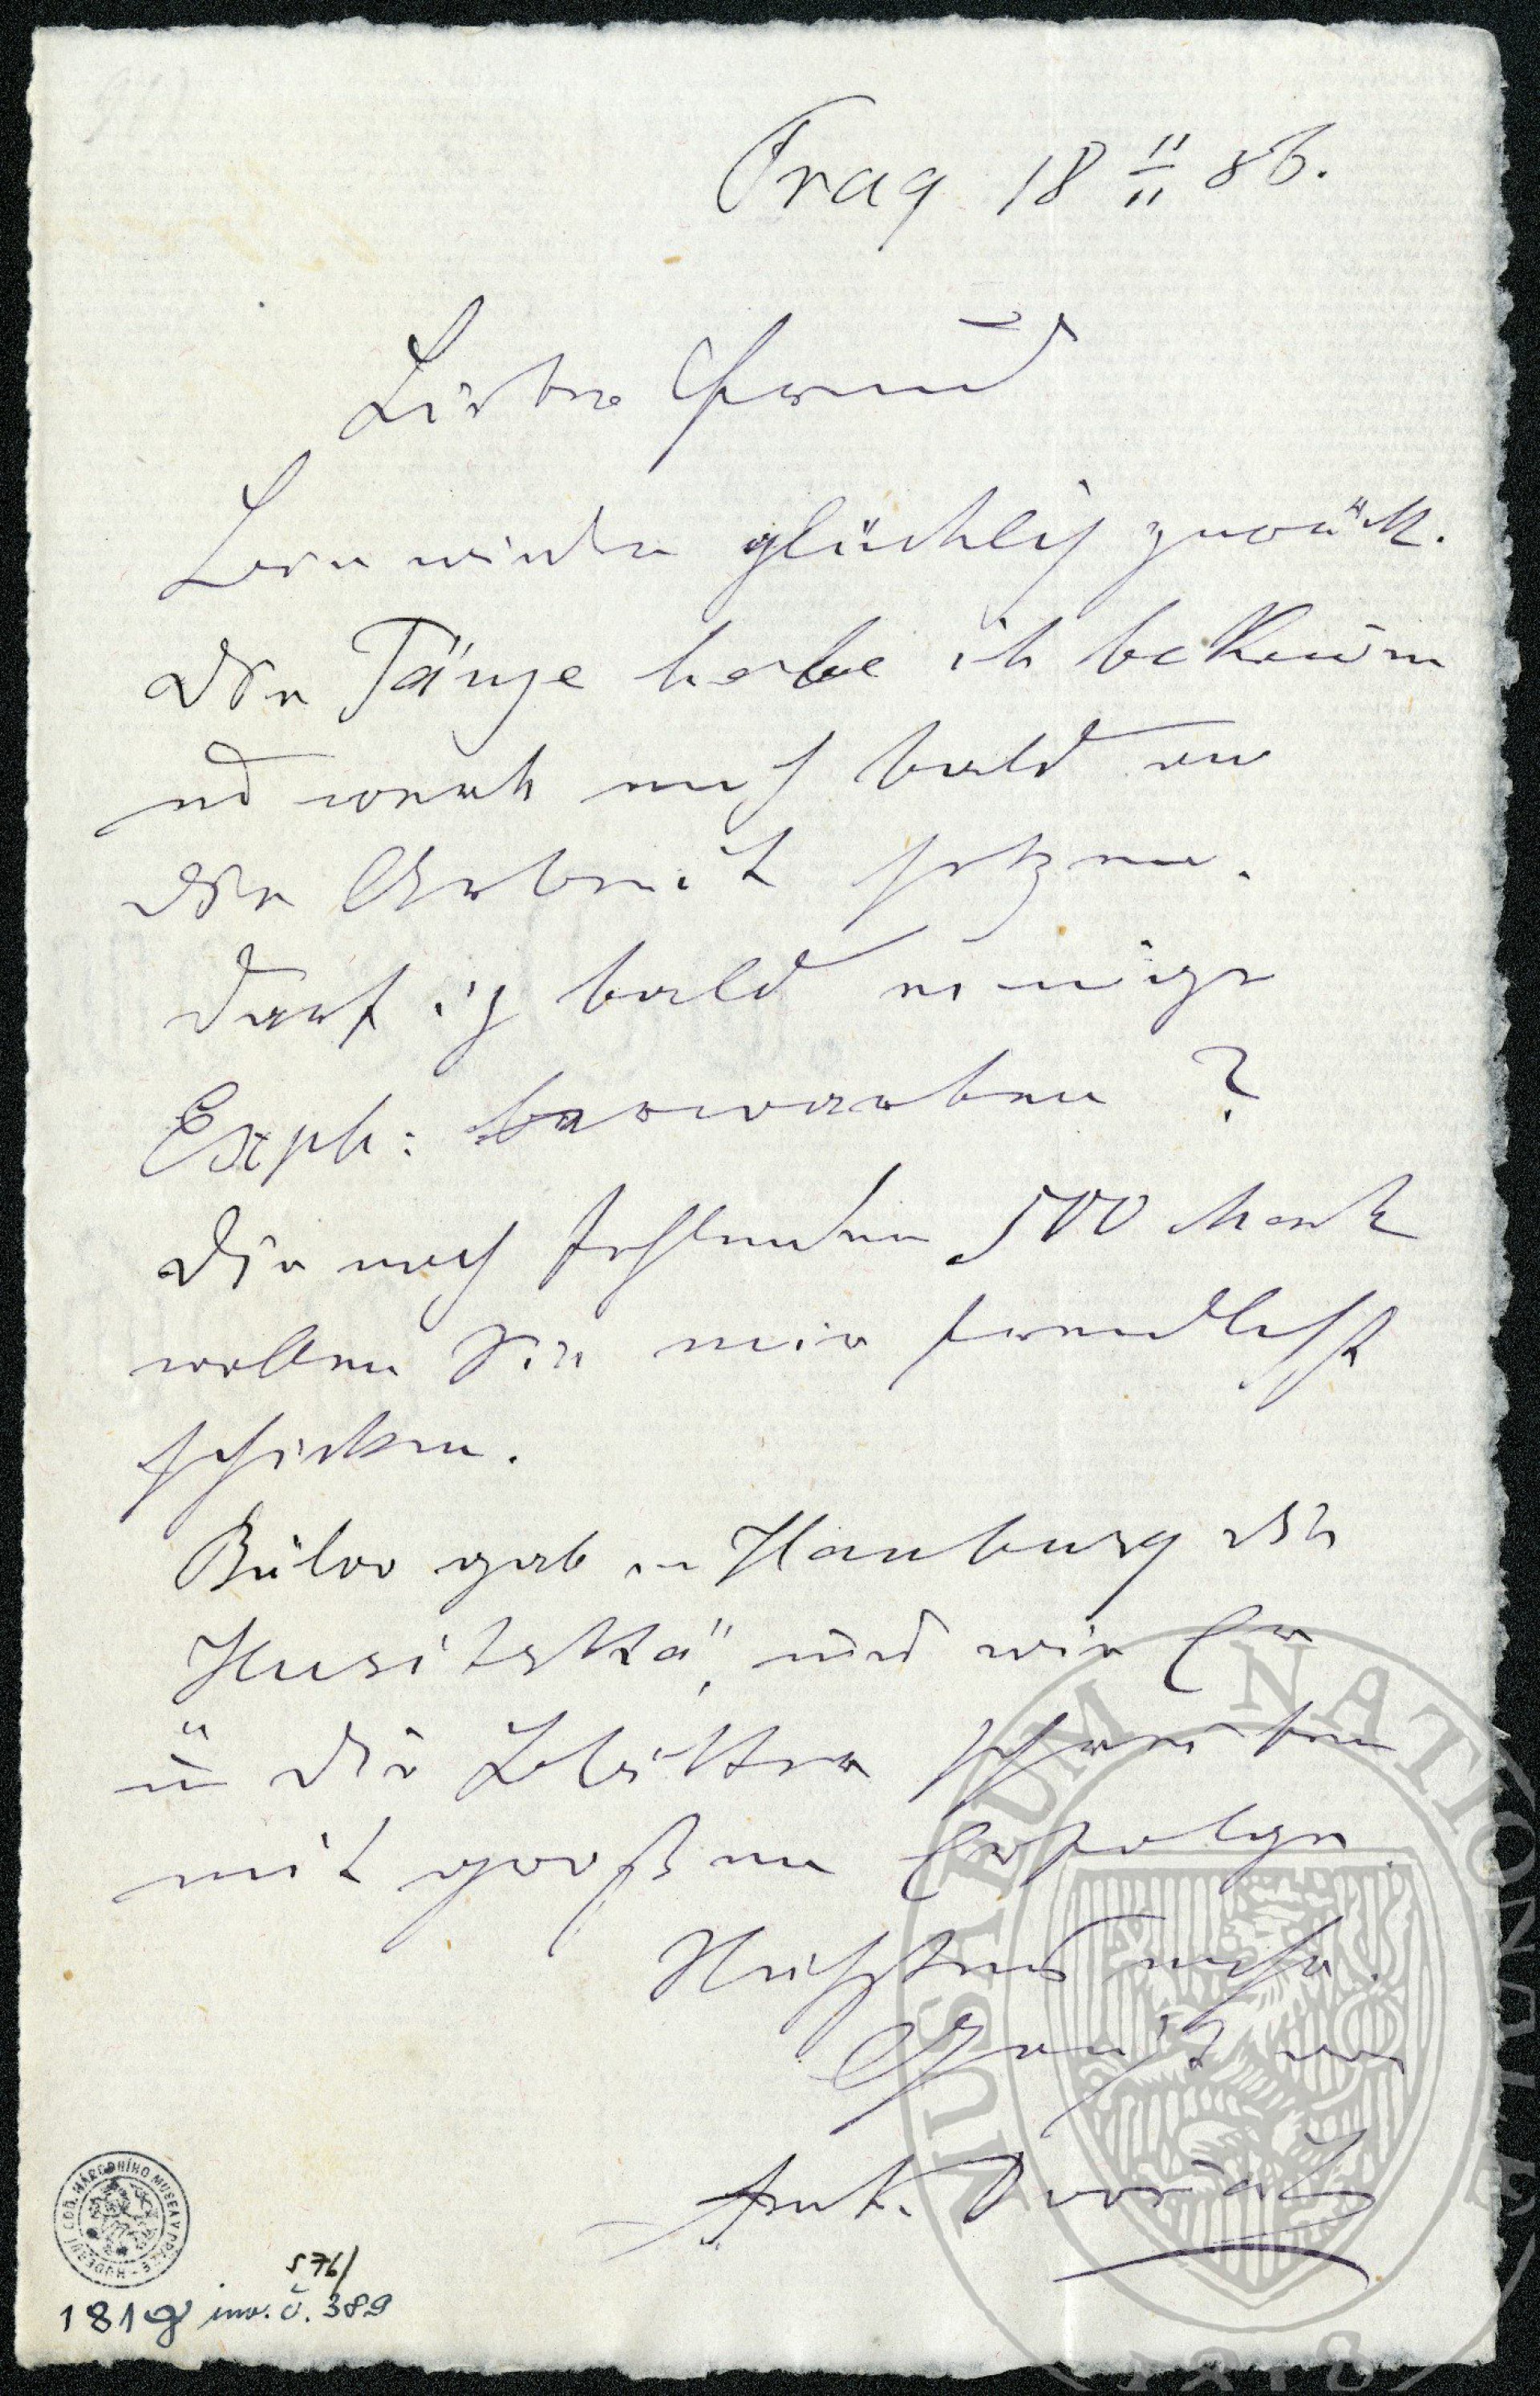 Prag 18 11/11 86.
Lieber Freund
Bin wieder glücklich zurück.
Die Tänze habe ich bekomen
und werde mich bald an
die Arbeit setzen.
Darf ich bald einige
Expl: erwarten?
Die noch fehlenden 500 Mark
wollen Sie mir freundlichst
schicken.
Bülov gab in Hamburg die
Husitská" und wie Er
ü die Blätter schreiben
mit großem Erfolge.
Nächstens mehr.
Grüßt
Ant. Dvořák
HUDEBNÍ ODD. NÁRODNÍHO MUSEA V PRAZE
576/
1819 inv. č. 389
MUSAEUM NATIONALE
1818